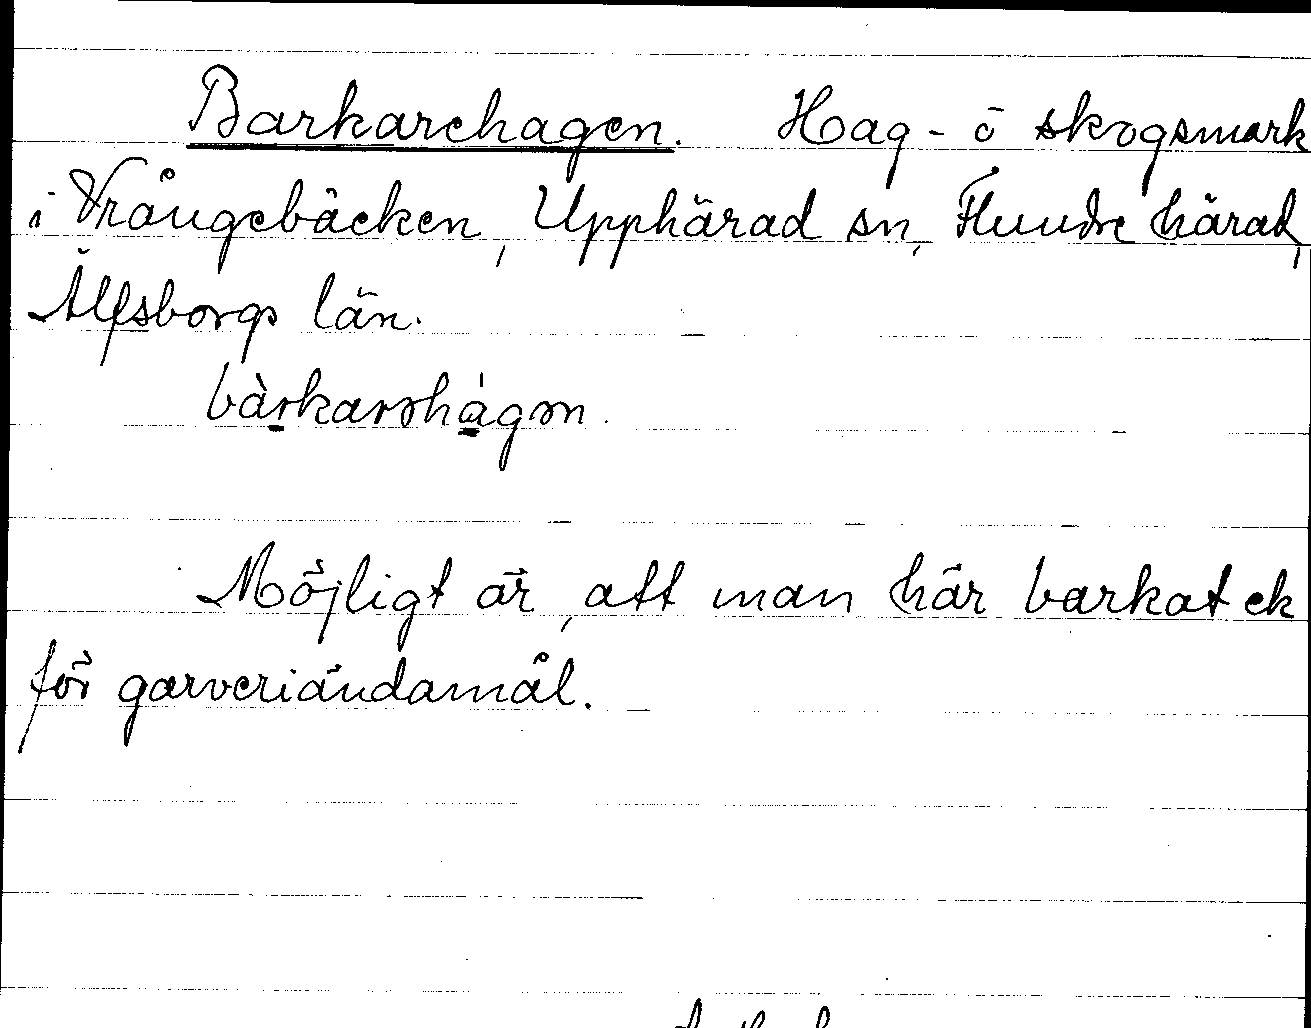 Barkarehagen. Hag- ō skogsmark
i Vrångebäcken, Upphärad sn, Flundre härad,
Älfsborgs län.
bàrkarəhágən.
Möjligt är, att man här barkat ek
för garveriändamål.